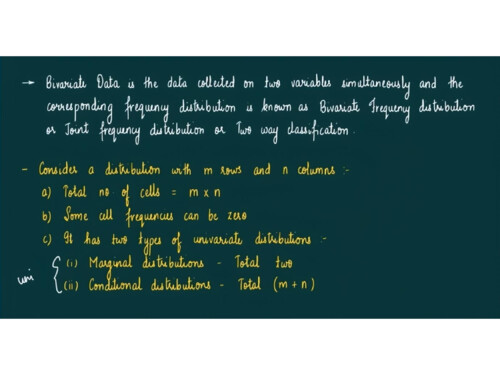 → Bivariate Data is the data collected on two variables simultaneously and the
corresponding frequency distribution is known as Bivariate Frequency distribution
or Joint frequency distribution or Two way classification.
- Consider a distribution with m rows and n columns :-
a) Total no of cells = m x n
b) Some cell frequencies can be zero
c) It has two types of univariate distributions :-
(i) Marginal distributions - Total two
uni { (ii) Conditional distributions - Total (m + n)